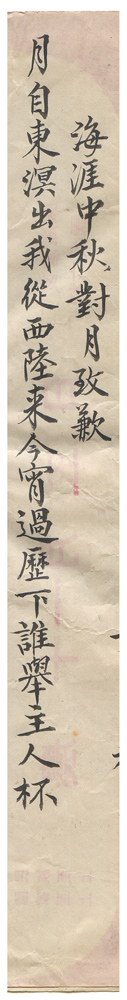 海涯中秋對月致歉
月自東溟出我從西陸来今宵過歷下誰舉主人杯